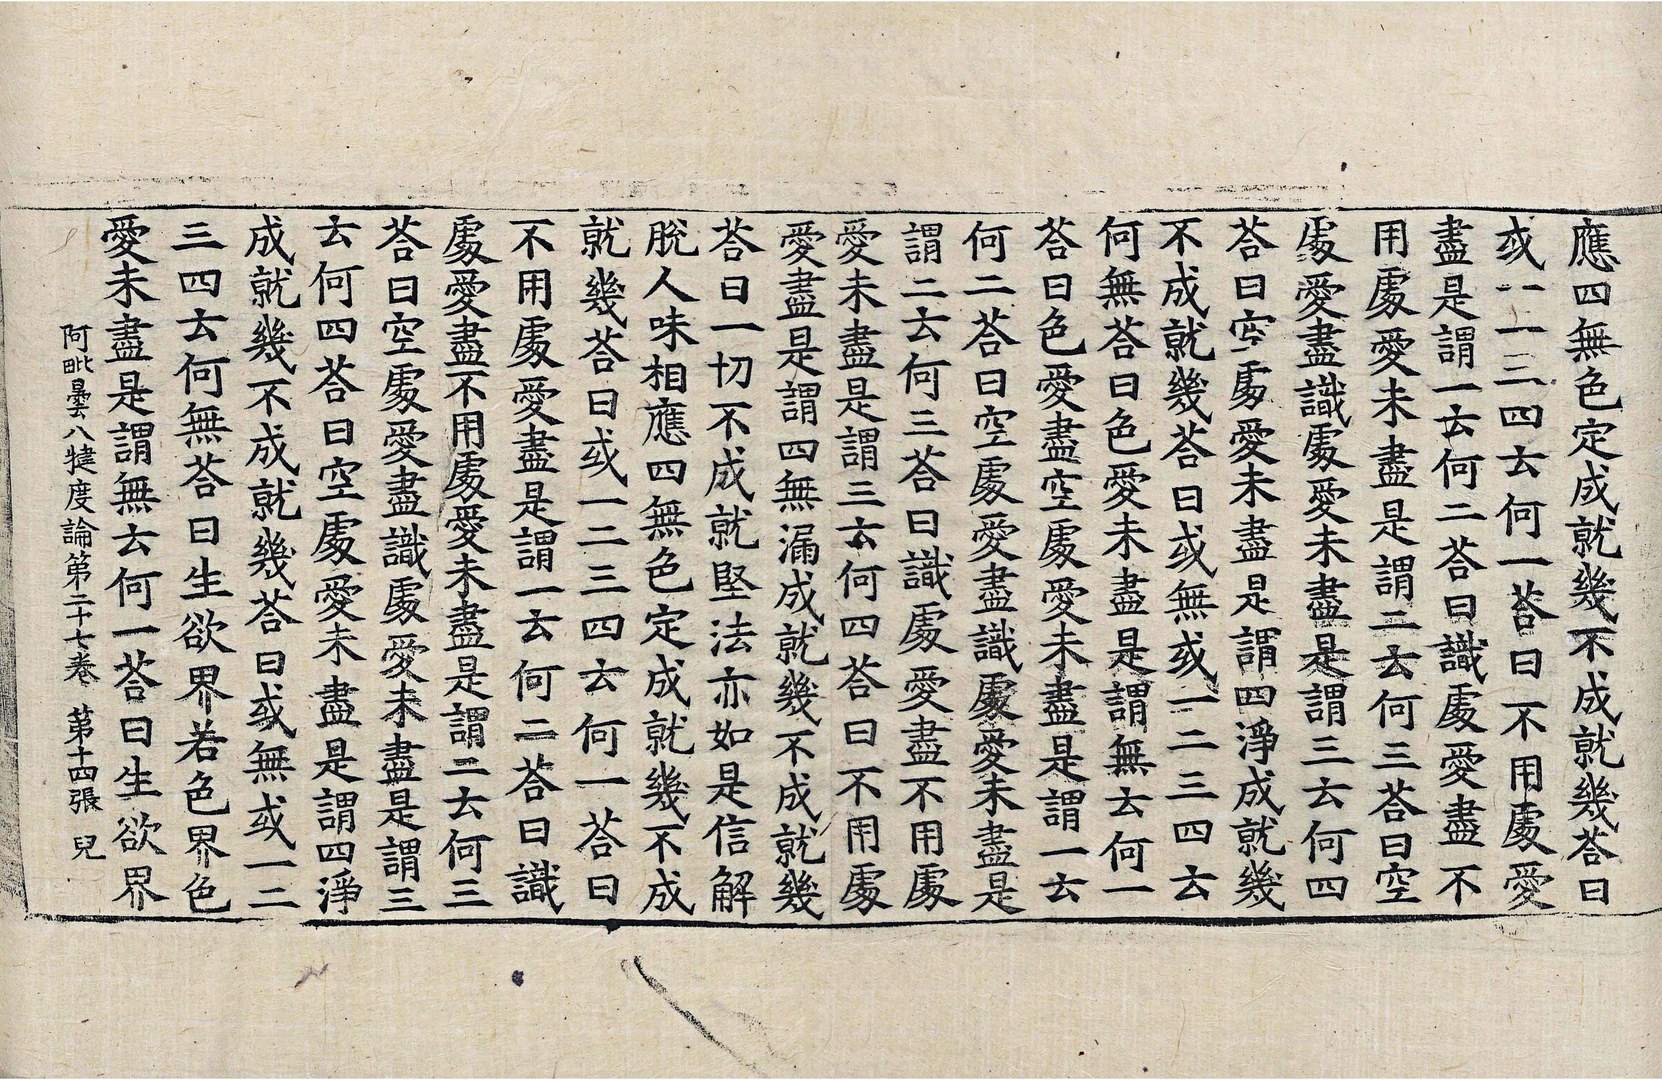 應四無色定成就幾不成就幾荅曰
或一二三四云何一荅曰不用處愛
盡是謂一云何二荅曰識處愛盡不
用處愛未盡是謂二云何三荅曰空
處愛盡識處愛未盡是謂三云何四
荅曰空處愛未盡是謂四淨成就幾
不成就幾荅曰或無或一二三四云
何無荅曰色愛未盡是謂無云何一
荅曰色愛盡空處愛未盡是謂一云
何二荅曰空處愛盡識處愛未盡是
謂二云何三荅曰識處愛盡不用處
愛未盡是謂三云何四荅曰不用處
愛盡是謂四無漏成就幾不成就幾
荅曰一切不成就堅法亦如是信解
脫人味相應四無色定成就幾不成
就幾荅曰或一二三四云何一荅曰
不用處愛盡是謂一云何二荅曰識
處愛盡不用處愛未盡是謂二云何三
荅曰空處愛盡識處愛未盡是謂三
云何四荅曰空處愛未盡是謂四淨
成就幾不成就幾荅曰或無或一二
三四云何無荅曰生欲界若色界色
愛未盡是謂無云何一荅曰生欲界
阿毗曇八犍度論第二十七卷 第十四張 兒